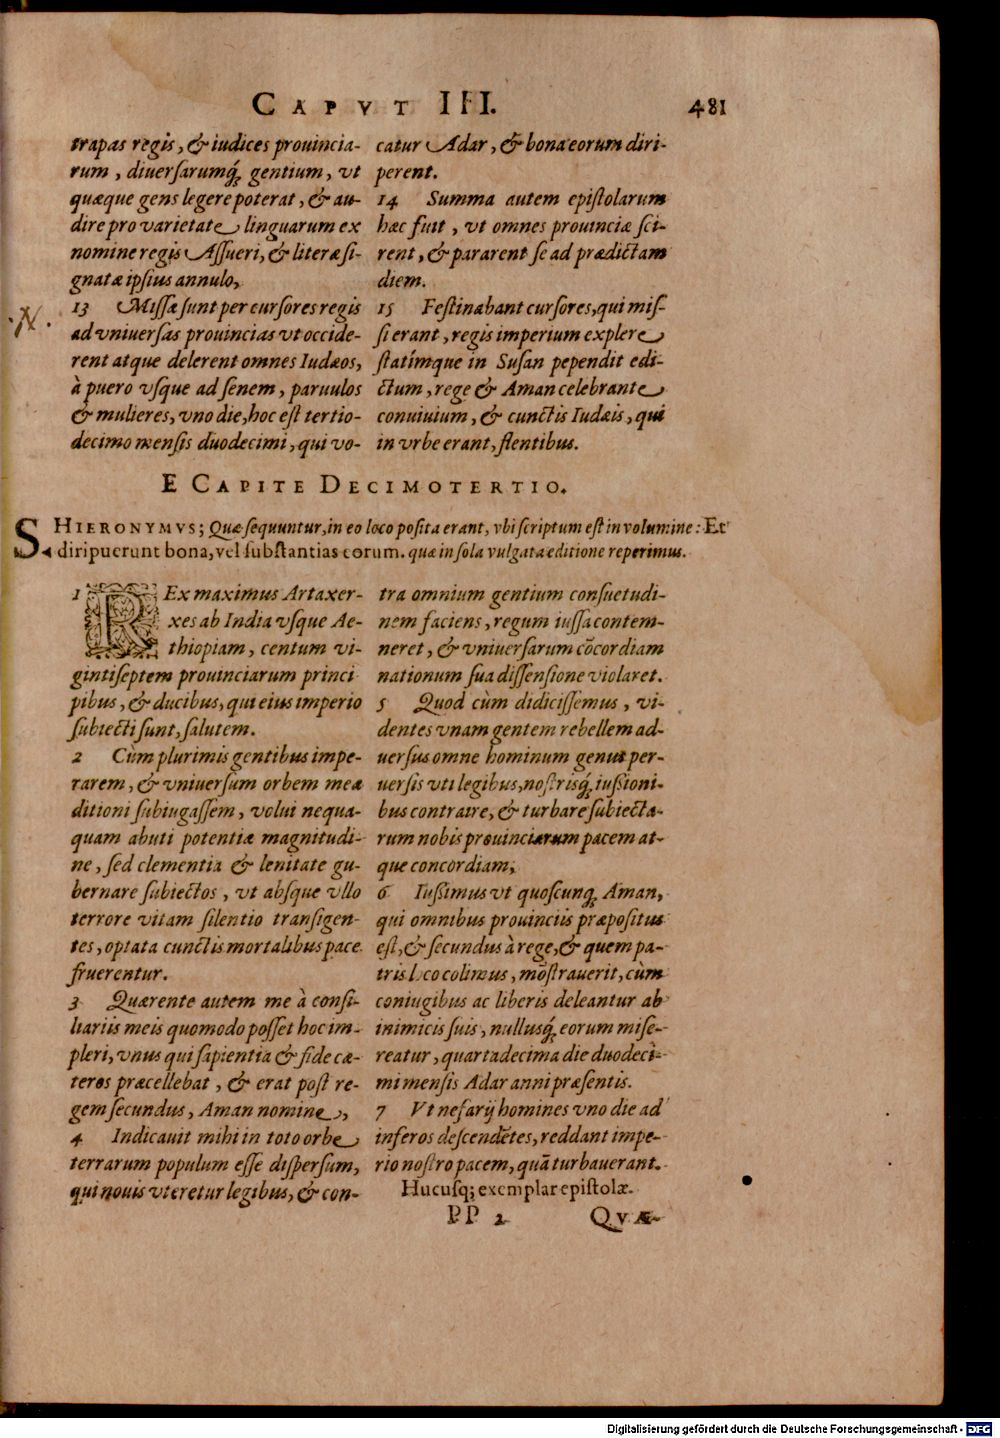 CAPVT III. 481
trapas regis, & iudices prouincia-
rum, diuersarumq́; gentium, vt
quæque gens legere poterat, & au-
dire pro varietate linguarum ex
nomine regis Assueri, & literæ si-
gnatæ ipsius annulo,
13 Missæ sunt per cursores regis
ad vniuersas prouincias vt occide-
rent atque delerent omnes Iudæos,
à puero vsque ad senem, paruulos
& mulieres, vno die, hoc est tertio-
decimo mensis duodecimi, qui vo-
catur Adar, & bona eorum diri-
perent.
14 Summa autem epistolarum
hæc fuit, vt omnes prouinciæ sci-
rent, & pararent se ad prædictam
diem.
15 Festinabant cursores, qui mis-
si erant, regis imperium explere
statímque in Susan pependit edi-
ctum, rege & Aman celebrante
conuiuium, & cunctis Iudæis, qui
in vrbe erant, flentibus.
E CAPITE DECIMOTERTIO.
S HIERONYMVS; Quæ sequuntur, in eo loco posita erant, vbi scriptum est in volumine: Et
diripuerunt bona, vel substantias eorum. quæ in sola vulgata editione reperimus.
1 REx maximus Artaxer-
xes ab India vsque Ae-
thiopiam, centum vi-
gintiseptem prouinciarum princi
pibus, & ducibus, qui eius imperio
subiecti sunt, salutem.
2 Cùm plurimis gentibus impe-
rarem, & vniuersum orbem meæ
ditioni subiugassem, volui nequa-
quam abuti potentiæ magnitudi-
ne, sed clementia & lenitate gu-
bernare subiectos, vt absque vllo
terrore vitam silentio transigen-
tes, optata cunctis mortalibus pace
fruerentur.
3 Quærente autem me à consi-
liariis meis quomodo posset hoc im-
pleri, vnus qui sapientia & fide cæ-
teros præcellebat, & erat post re-
gem secundus, Aman nomine,
4 Indicauit mihi in toto orbe
terrarum populum esse dispersum,
qui nouis vteretur legibus, & con-
tra omnium gentium consuetudi-
nem faciens, regum iussa contem-
neret, & vniuersarum cōcordiam
nationum sua dissensione violaret.
5 Quod cùm didicissemus, vi-
dentes vnam gentem rebellem ad-
uersus omne hominum genus per-
uersis vti legibus, nostrisq́; iußioni-
bus contraire, & turbare subiecta-
rum nobis prouinciarum pacem at-
que concordiam,
6 Iußimus vt quoscunq; Aman,
qui omnibus prouinciis præpositus
est, & secundus à rege, & quem pa-
tris loco colimus, mōstrauerit, cùm
coniugibus ac liberis deleantur ab
inimicis suis, nullusq́; eorum mise-
reatur, quartadecima die duodeci-
mi mensis Adar anni præsentis.
7 Vt nefarij homines vno die ad
inferos descendētes, reddant impe-
rio nostro pacem, quā turbauerant.
Hucusq; exemplar epistolæ.
PP 2 QVÆ-
Digitalisierung gefördert durch die Deutsche Forschungsgemeinschaft - DFG